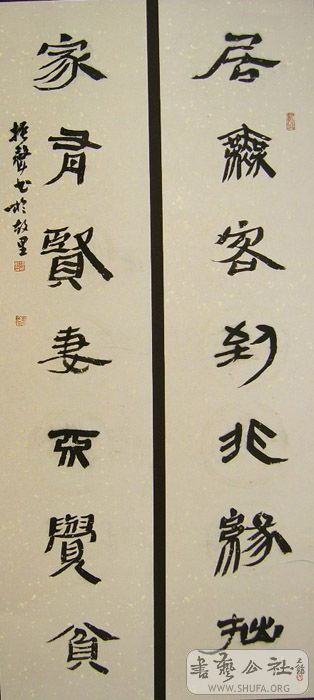 居無客到非緣拙
家有賢妻不覺貧
書藝公社
WWW.SHUFA.ORG